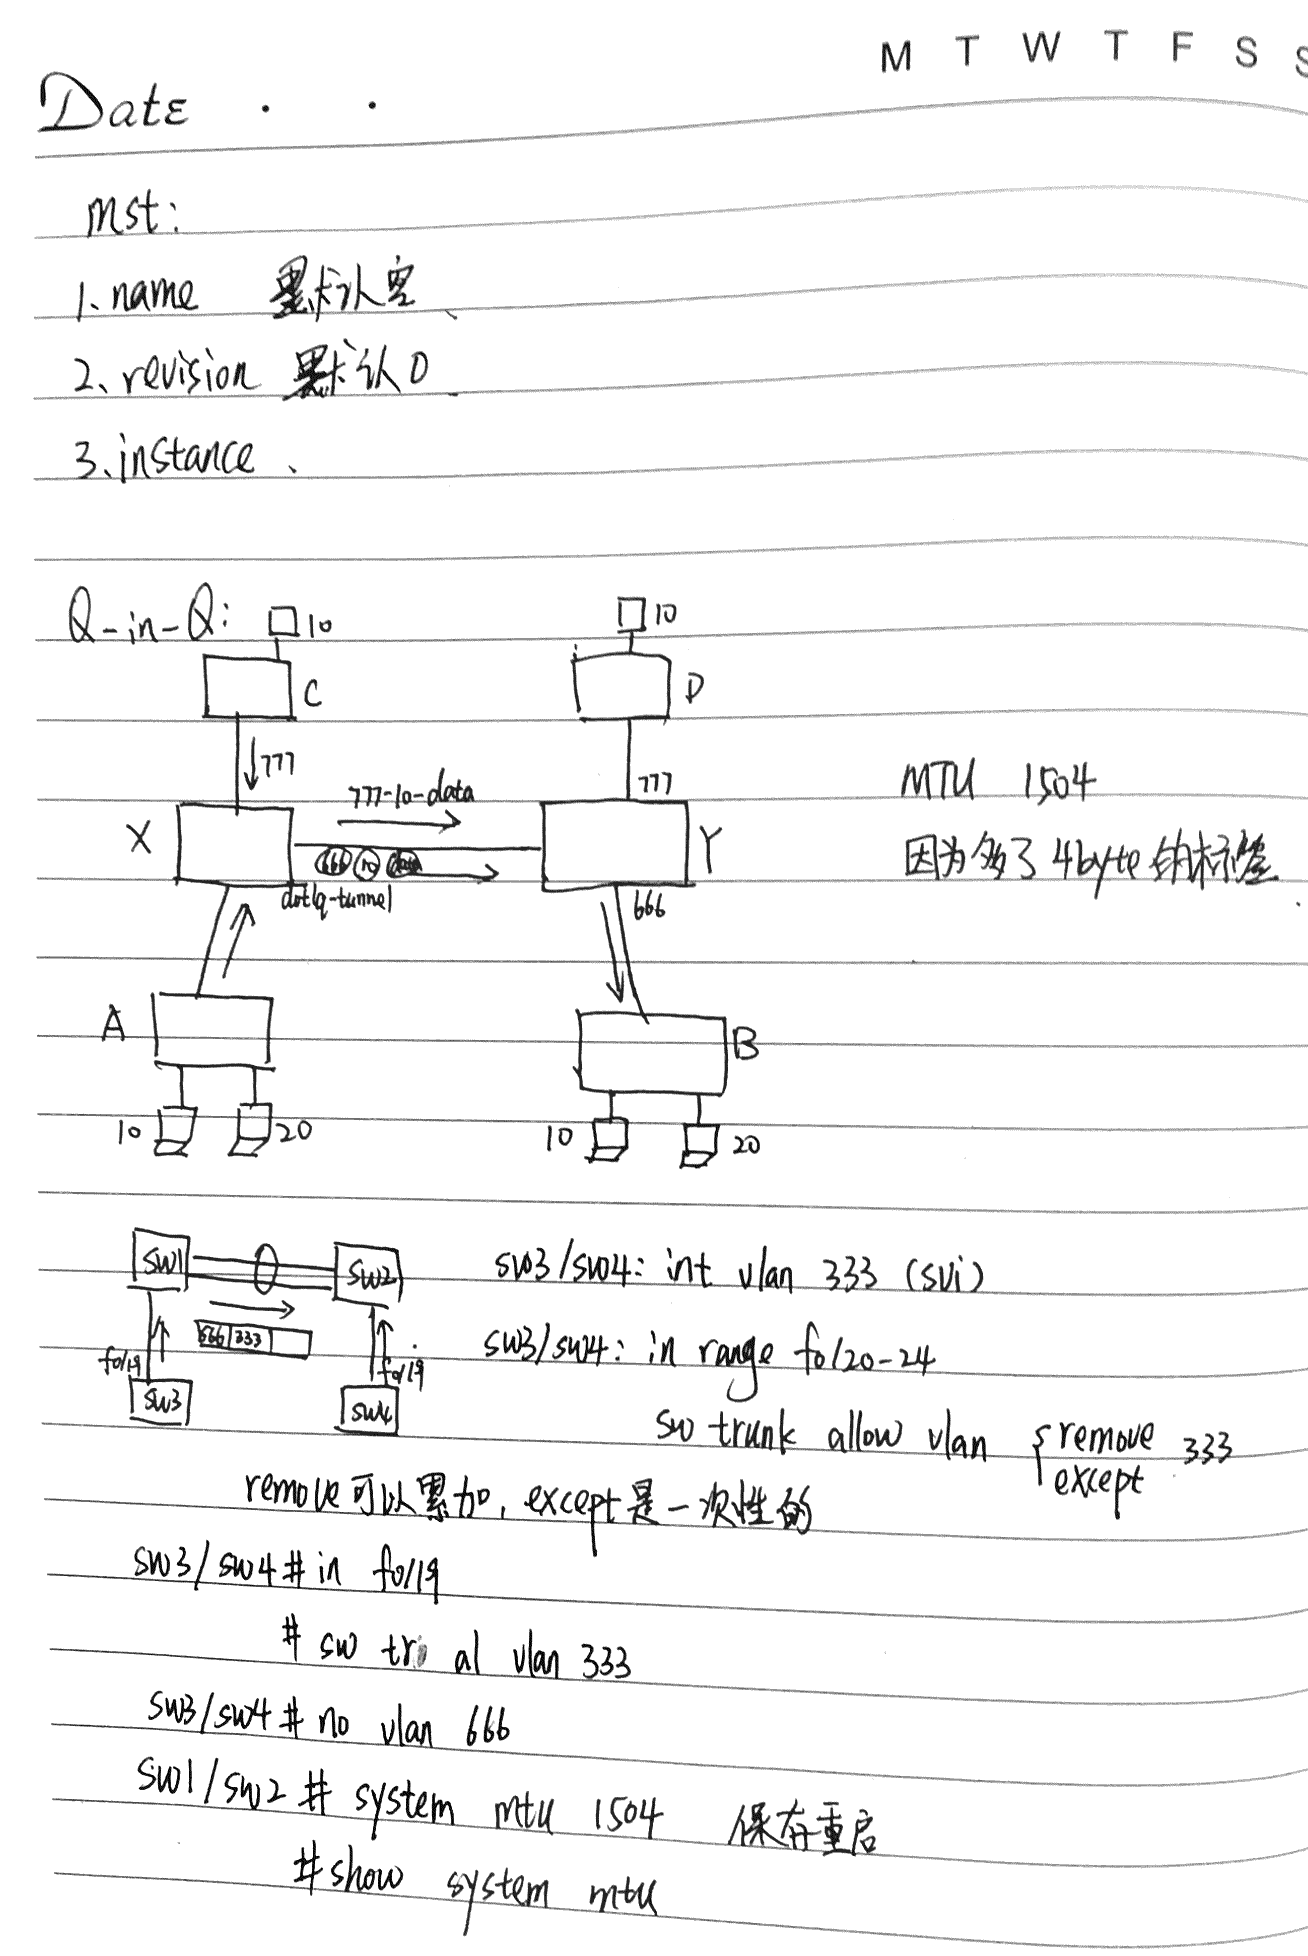 M T W T F S S
Date . .
mst:
1、name 默认空
2、revision 默认0
3、instance、
Q-in-Q:
10
10
C
D
777
777
777-10-data
MTU 1504
X
Y
666 10 data
因为多了4byte的标签
dot1q-tunnel
666
A
B
10
20
10
20
SW1
SW2
sw3/sw4: int vlan 333 (svi)
666 333
f0/19
f0/19
sw3/sw4: in range f0/20-24
SW3
SW4
sw trunk allow vlan {remove 333
except
remove可以累加, except是一次性的
sw3/sw4# in f0/19
# sw tr al vlan 333
sw3/sw4# no vlan 666
sw1/sw2# system mtu 1504 保存重启
#show system mtu